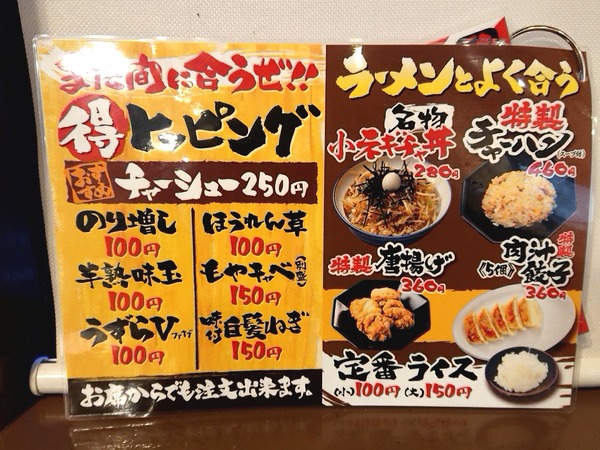 まだ間に合うぜ!!
得トッピング
おすすめ チャーシュー250円
のり増し
100円
半熟味玉
100円
うずらV
100円
ほうれん草
100円
もやキャベ(別盛)
150円
味付白髪ねぎ
150円
お席からでも注文出来ます。
ラーメンとよく合う
名物
小ネギチャ丼
280円
特製
チャーハン
(スープ付)
460円
特製唐揚げ
360円
特製
肉汁餃子
《5個》
360円
定番ライス
(小)100円(大)150円